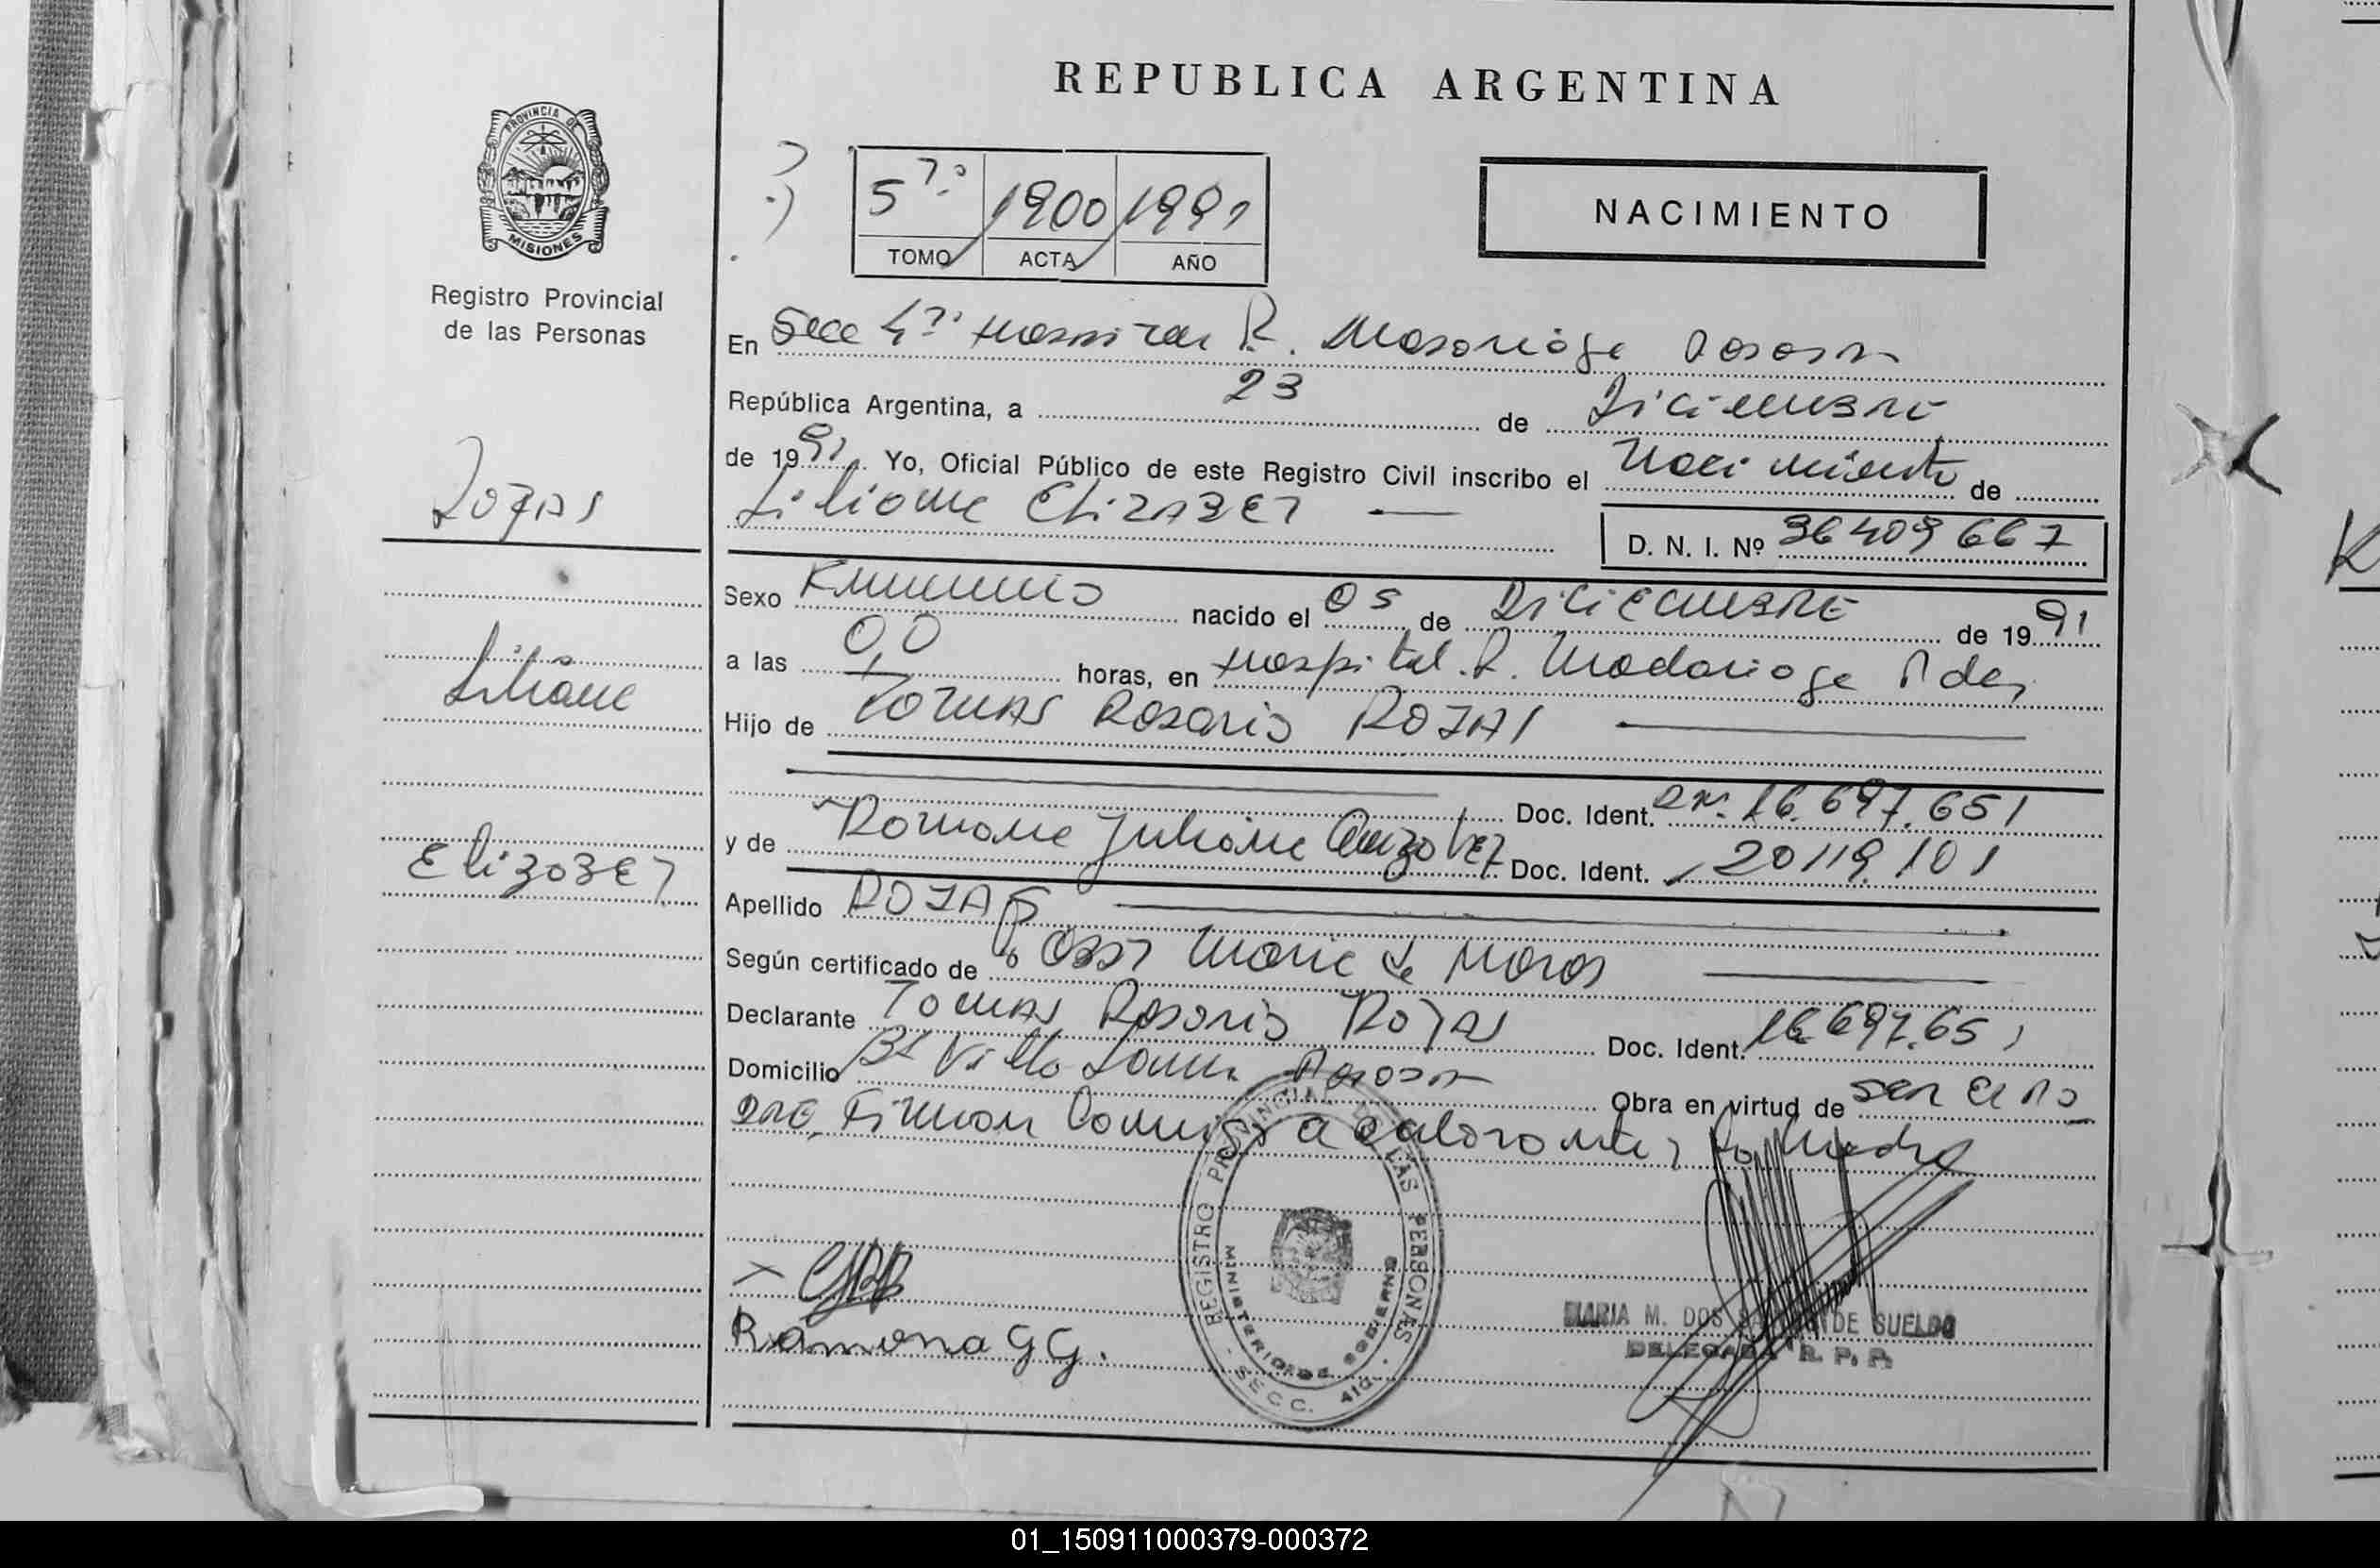 REPUBLICA ARGENTINA
PROVINCIA DE
MISIONES
Registro Provincial
de las Personas
5º 1900 1991
TOMO ACTA AÑO
NACIMIENTO
En Secc 4ª Hospital R. Madariaga Posadas
República Argentina, a 23 de Diciembre
de 1991 Yo, Oficial Público de este Registro Civil inscribo el Nacimiento de
Liliana Elizabet
D. N. I. Nº 36409667
Rojas
Liliana
Elizabet
Sexo Femenino nacido el 05 de Diciembre de 1991
a las 0,0 horas, en Hospital R. Madariaga Pdas
Hijo de Tomas Rosario ROJAS
Doc. Ident. 16.697.651
y de Ramona Juliana Doc. Ident. 20119.101
Apellido ROJAS
Según certificado de Obst Maria de
Declarante Tomas Rosario Rojas Doc. Ident. 16.697.651
Domicilio Bº Villa Posadas Obra en virtud de ser el Pa
dre, Firman Comigo el declarante y la Madre
REGISTRO PROVINCIAL DE LAS PERSONAS
MINISTERIO DE GOBIERNO
SECC. 4ta.
Ramona G G.
MARIA M. DOS DE SUELDO
DELEGADA R. P. P.
01_150911000379-000372